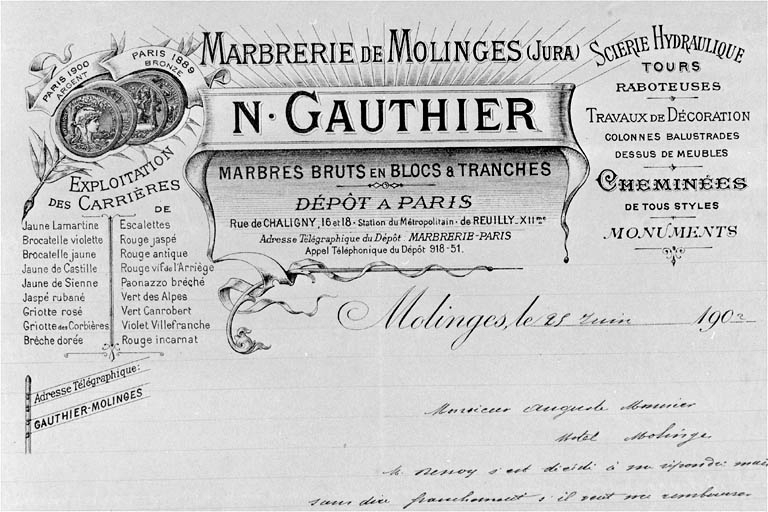 PARIS 1900
ARGENT
PARIS 1889
BRONZE
MARBRERIE DE MOLINGES (JURA)
N. GAUTHIER
MARBRES BRUTS EN BLOCS & TRANCHES
DÉPÔT A PARIS
Rue de CHALIGNY, 16 et 18 - Station du Métropolitain - de REUILLY - XIIme
Adresse Télégraphique du Dépôt. MARBRERIE-PARIS
Appel Téléphonique du Dépôt 918-51.
SCIERIE HYDRAULIQUE
TOURS
RABOTEUSES
TRAVAUX DE DÉCORATION
COLONNES BALUSTRADES
DESSUS DE MEUBLES
CHEMINÉES
DE TOUS STYLES
MONUMENTS
EXPLOITATION
DES CARRIÈRES
DE
Jaune Lamartine
Brocatelle violette
Brocatelle jaune
Jaune de Castille
Jaune de Sienne
Jaspé rubané
Griotte rosé
Griotte des Corbières
Brêche dorée
Escalettes
Rouge jaspé
Rouge antique
Rouge vif de l'Arriège
Paonazzo bréché
Vert des Alpes
Vert Canrobert
Violet Villefranche
Rouge incarnat
Adresse Télégraphique:
GAUTHIER-MOLINGES
Molinges, le 25 Juin 1902
Monsieur Auguste
Hotel Molinge
M. s'est décidé à me répondre mais
sans dire franchement s'il veut me rembourser